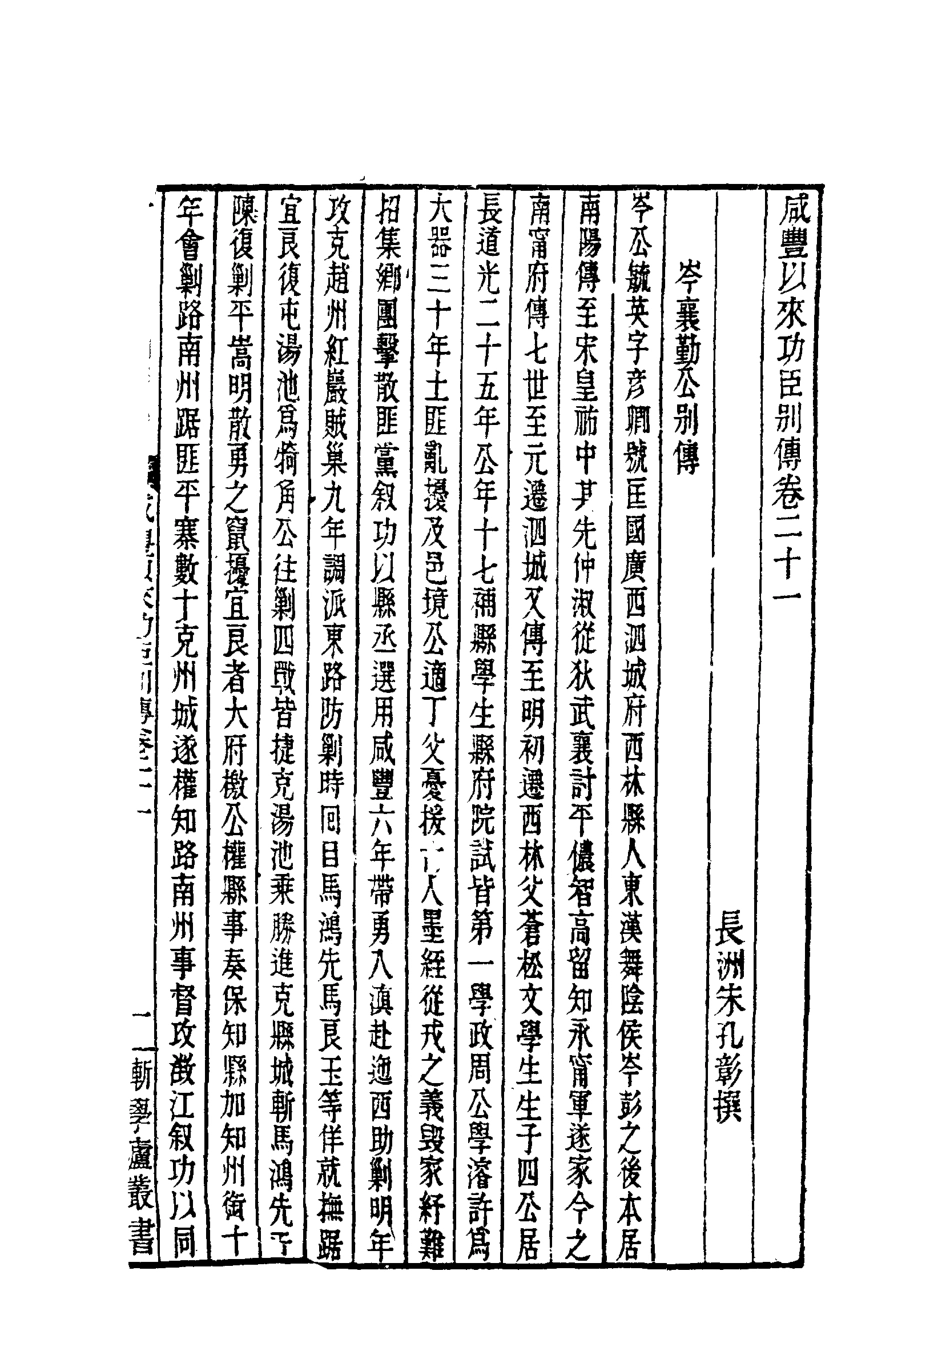 咸豐以來功臣别傳卷二十一
長洲朱孔彰撰
岑襄勤公别傳
岑公毓英字彦卿號匡國廣西泗城府西林縣人東漢舞陰侯岑彭之後本居
南陽傳至宋皇祐中其先仲淑從狄武襄討平儂智高留知永甯軍遂家今之
南甯府傳七世至元遷泗城又傳至明初遷西林父蒼松文學生生子四公居
長道光二十五年公年十七補縣學生縣府院試皆第一學政周公學濬許爲
大器三十年土匪亂擾及邑境公適丁父憂援古人墨絰從戎之義毀家紓難
招集鄉團擊散匪黨叙功以縣丞選用咸豐六年帶勇入滇赴迤西助剿明年
攻克趙州紅巖賊巢九年調派東路防剿時回目馬鴻先馬良玉等佯就撫踞
宜良復屯湯池爲犄角公往剿四戰皆捷克湯池乘勝進克縣城斬馬鴻先于
陳復剿平嵩明散勇之竄擾宜良者大府檄公權縣事奏保知縣加知州銜十
年會剿路南州踞匪平寨數十克州城遂權知路南州事督攻澂江叙功以同
咸豐以來功臣别傳卷二十一
一
漸學廬叢書